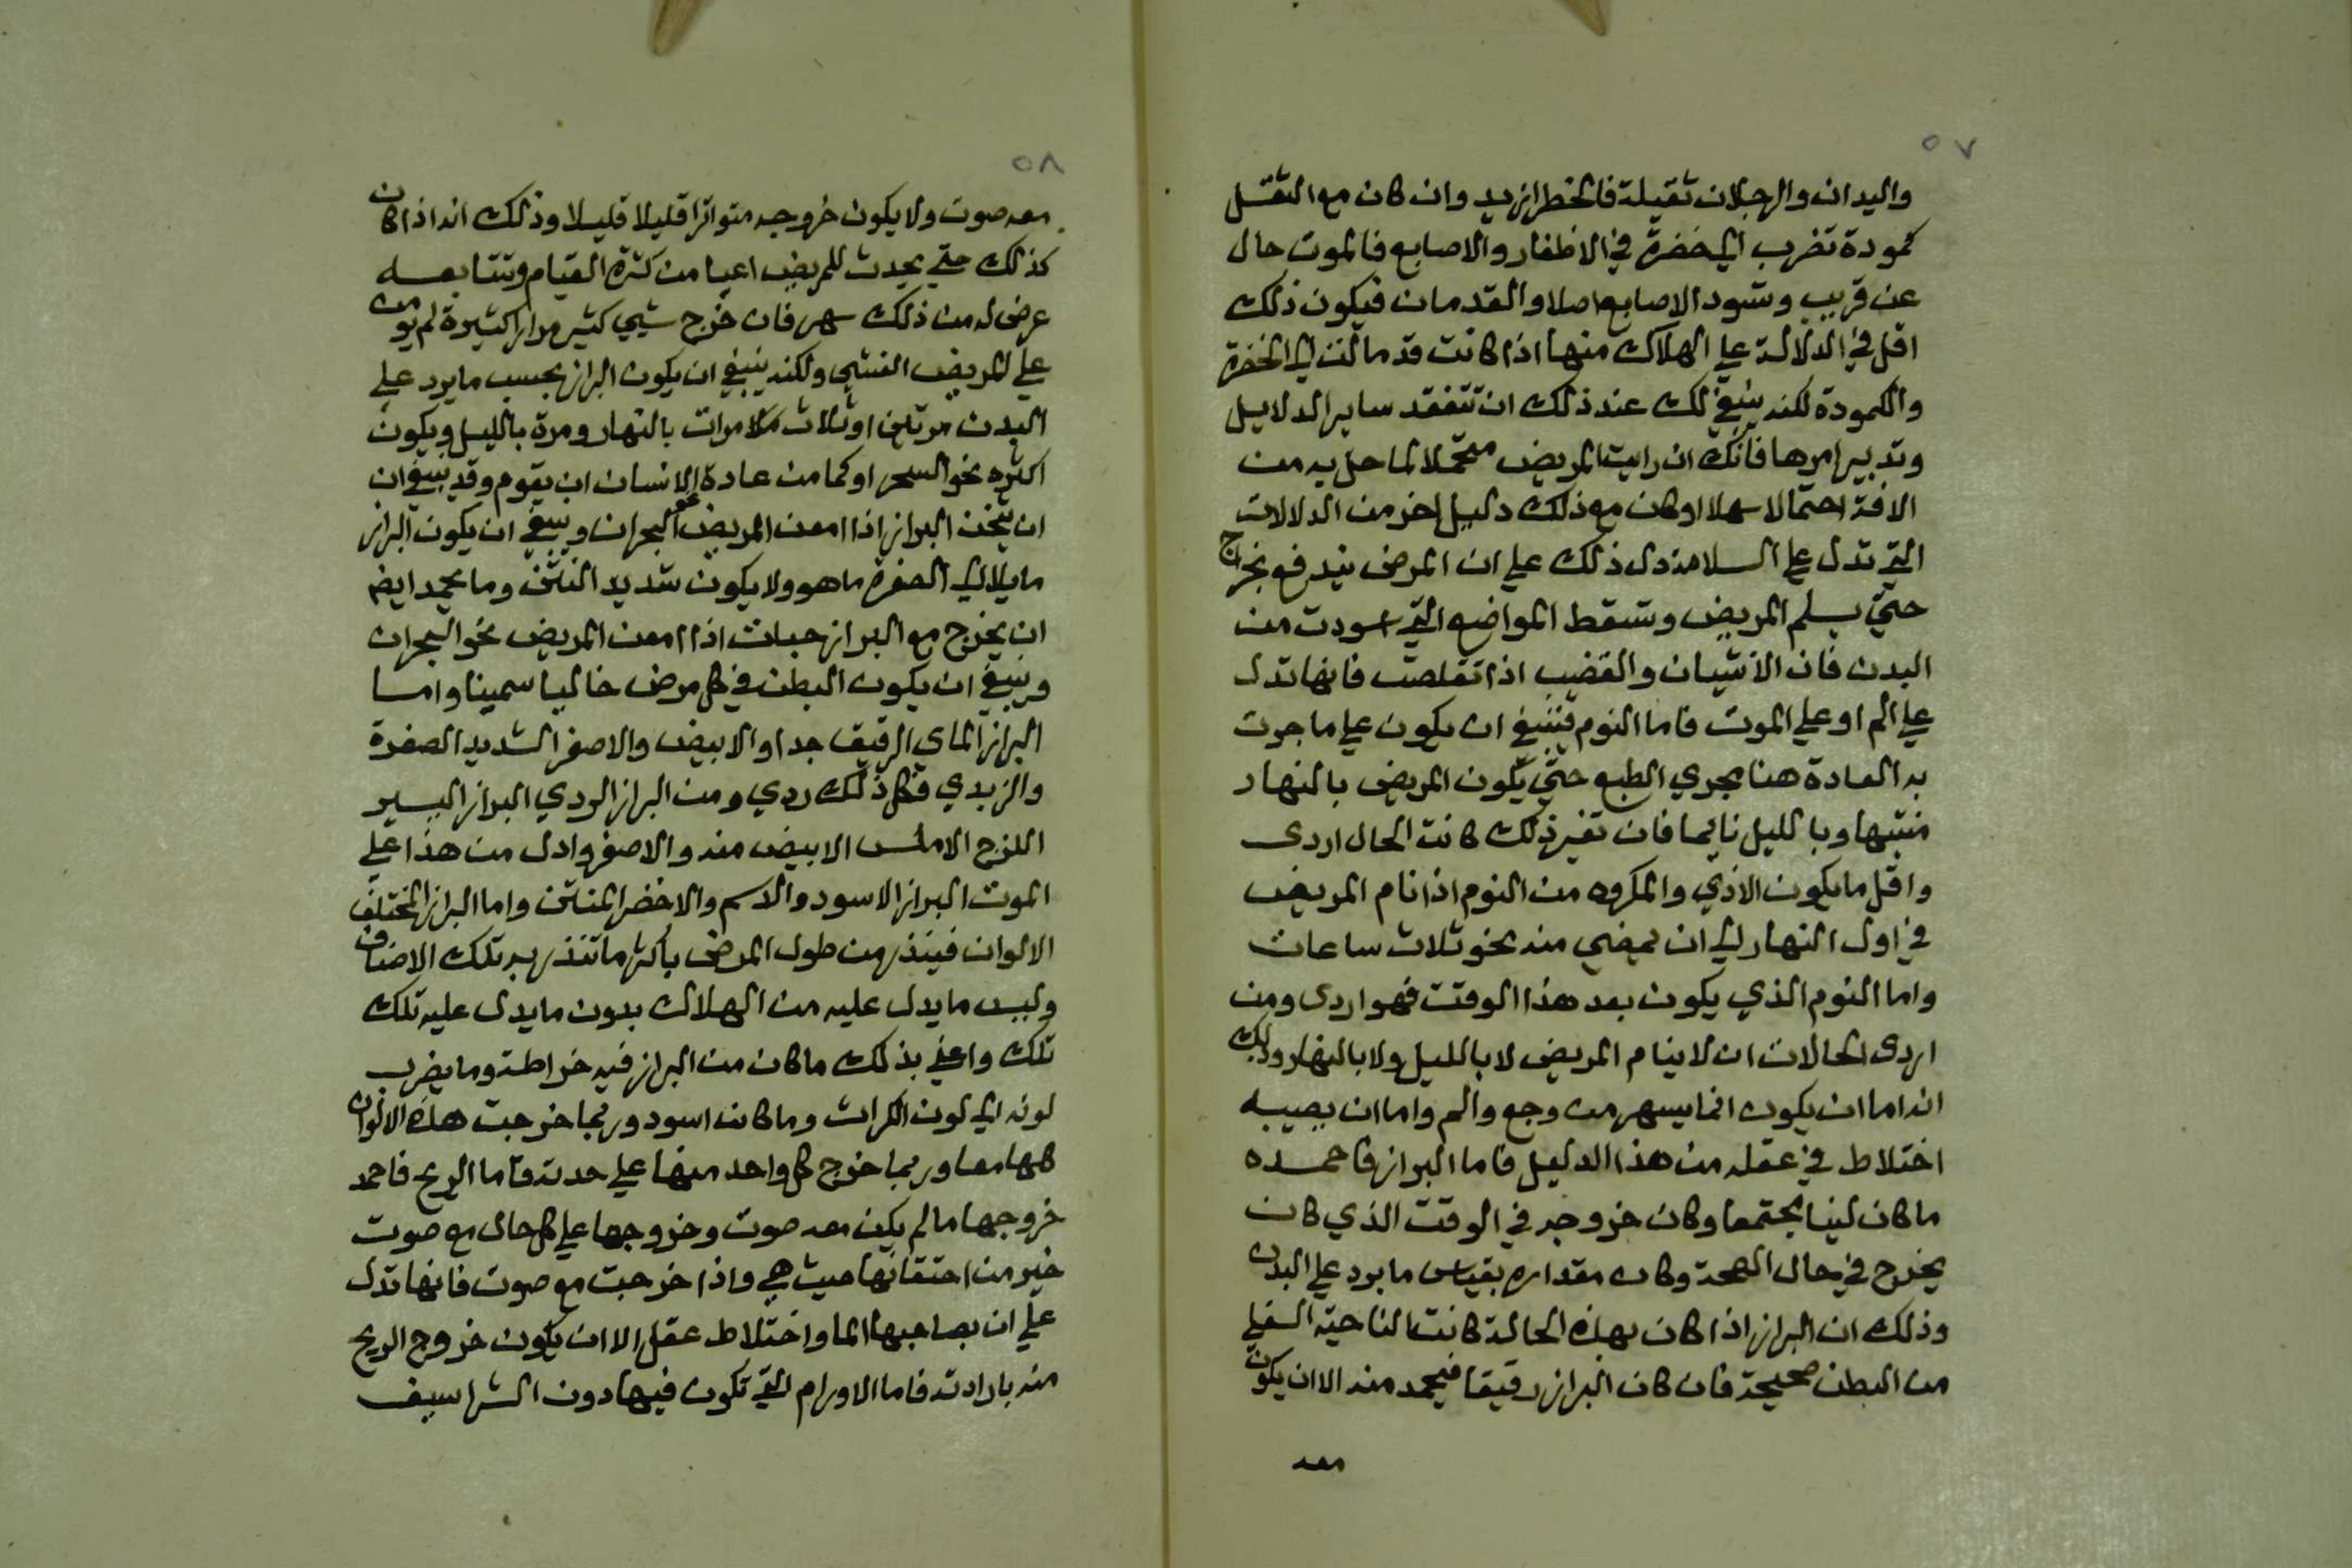 ٥٧
واليدان والرجلان ثقيلة فالخطر ازيد وان كان مع الثقل
كمودة تضرب الي خضرة في الاظفار والاصابع فالموت حال
عن قريب وتسود الاصابع اصلا والقدمان فيكون ذلك
اقل في الدلالة علي الهلاك منها اذا كانت قد مالت الي الخضرة
والكمودة لكنه ينبغي لك عند ذلك ان تتفقد ساير الدلايل
وتدبير امرها فانك ان رايت المريض محتملا لما حل به من
الافة احتمالا سهلا او كان مع ذلك دليل اخر من الدلالات
التي تدل علي السلامة دل ذلك علي ان المرض يندفع بخراج
حتي يسلم المريض وتسقط المواضع التي اسودت من
البدن فان الانثيان والقضيب اذا تقلصت فانها تدل
علي الم او علي الموت فاما النوم فينبغي ان يكون علي ما جرت
به العادة هنا بمجري الطبع حتي يكون المريض بالنهار
منتبها وبالليل نايما فان تغير ذلك كانت الحال اردى
واقل ما يكون الاذي والمكروه من النوم اذا نام المريض
في اول النهار الي ان يمضي منه نحو ثلاث ساعات
واما النوم الذي يكون بعد هذا الوقت فهو اردى ومن
اردى الحالات ان لا ينام المريض لا بالليل ولا بالنهار وذلك
انه اما ان يكون انما يسهر من وجع والم واما ان يصيبه
اختلاط في عقله من هذا الدليل فاما البراز فاحمده
ما كان لينا مجتمعا وكان خروجه في الوقت الذي كان
يخرج في حال الصحة وكان مقداره بقياس ما يرد علي البدن
وذلك ان البراز اذا كان بهذه الحالة كانت الناحية السفلي
من البطن صحيحة فان كان البراز رقيقا فيحمد منه الا ان يكون
معه
٥٨
معه صوت ولا يكون خروجه متواترا قليلا قليلا وذلك انه اذا كان
كذلك حتي يحدث للمريض اعيا من كثرة القيام وتتابعه
عرض له من ذلك سهر فان خرج شيي كثير مرارا كثيرة لم يومن
علي المريض الغشي ولكنه ينبغي ان يكون البراز بحسب ما يرد علي
البدن مرتين او ثلاث مرات بالنهار ومرة بالليل ويكون
اكثره نحو السحر او كما من عادة الانسان ان يقوم وقد ينبغي ان
ان يثخن البراز اذا امعن المريض نحو البحران وينبغي ان يكون البراز
مايلا الي الصفرة ما هو ولا يكون شديد النتن ومما يحمد ايضا
ان يخرج مع البراز حيات اذا امعن المريض نحو البحران
وينبغي ان يكون البطن في كل مرض خاليا سمينا واما
البراز الماي الرقيق جدا والابيض والاصفر الشديد الصفرة
والزبدي فكل ذلك ردي ومن البراز الردي البراز اليسير
اللزج الاملس الابيض منه والاصفر وادل من هذا علي
الموت البراز الاسود والدسم والاخضر المنتن واما البراز المختلف
الالوان فينذر من طول المرض باكثر ما تنذر به تلك الاصناف
وليس ما يدل عليه من الهلاك بدون ما يدل عليه تلك
تلك واعني بذلك ما كان من البراز فيه خراطة وما يضرب
لونه الي لون الكراث وما كان اسود وربما خرجت هذه الالوان
كلها معا وربما خرج كل واحد منها علي حدته فاما الريح فاحمد
خروجها ما لم يكن معه صوت وخروجها علي كل حال مع صوت
خير من احتقانها حيث هي واذا خرجت مع صوت فانها تدل
علي ان بصاحبها الما واختلاط عقل الا ان يكون خروج الريح
منه بارادته فاما الاورام التي تكون فيها دون الشراسيف